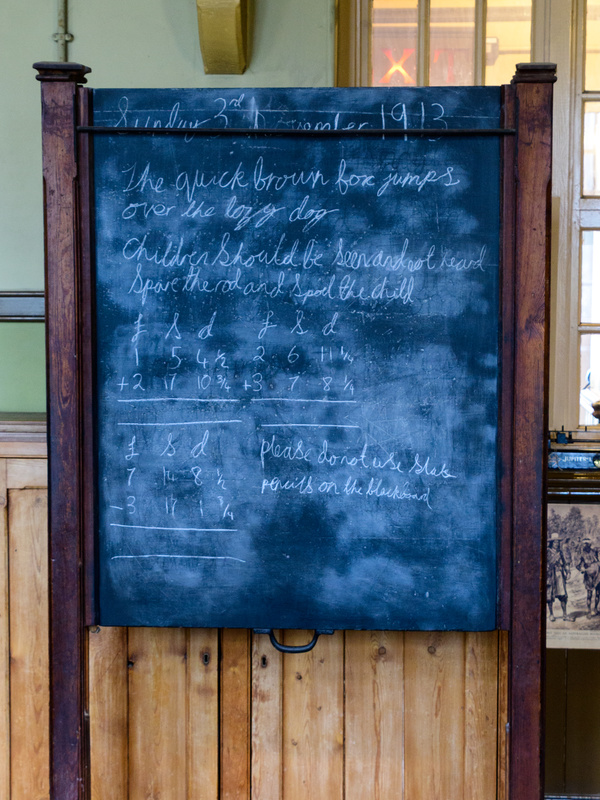 Sunday 3rd November 1913
The quick brown fox jumps
over the lazy dog
Children Should be Seen and not heard
Spare the rod and Spoil the child
£ S d £ S d
1 5 4 ½ 2 6 11 ¼
+2 17 10 ¾ +3 7 8 ¼
£ S d
7 14 8 ½
-3 17 1 ¾
please do not use slate
pencils on the blackboard
JUPITER